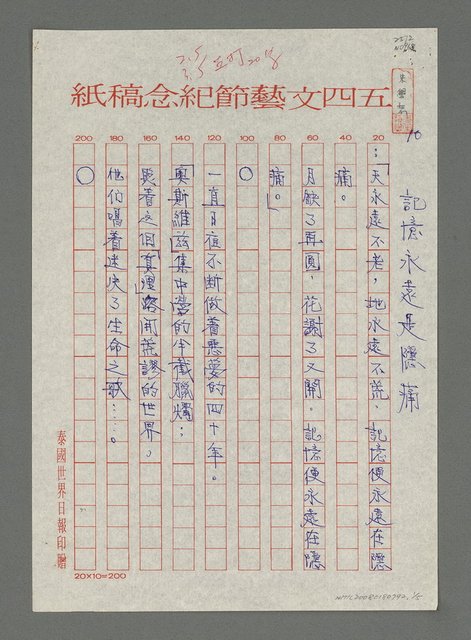 五四文藝節紀念稿紙
記憶永遠是隱痛
20 40 60 80 100 120 140 160 180 200
:「天永遠不老,地永遠不荒,記憶便永遠在隱
痛。
月缺了再圓,花謝了又開。記憶便永遠在隱
痛。」
○
一直日夜不斷做着惡夢的四十年。
「奧斯維兹」集中營的半截臘燭,
着这個「真理」 開荒謬的世界。
他们唱着迷失了生命之歌……。
○
泰國世界日報印贈
20×10=200
NMTL20080180792, 1/5